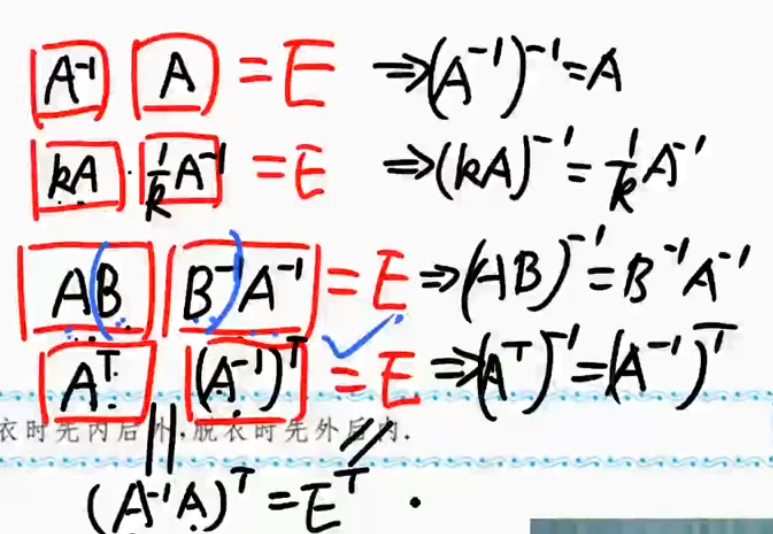 A⁻¹ A = E ⇒ (A⁻¹)⁻¹ = A
kA · 1/k A⁻¹ = E ⇒ (kA)⁻¹ = 1/k A⁻¹
A(B B⁻¹)A⁻¹ = E ⇒ (AB)⁻¹ = B⁻¹A⁻¹
Aᵀ (A⁻¹)ᵀ = E ⇒ (Aᵀ)⁻¹ = (A⁻¹)ᵀ
衣时先内后外,脱衣时先外后内.
(A⁻¹A)ᵀ = Eᵀ .